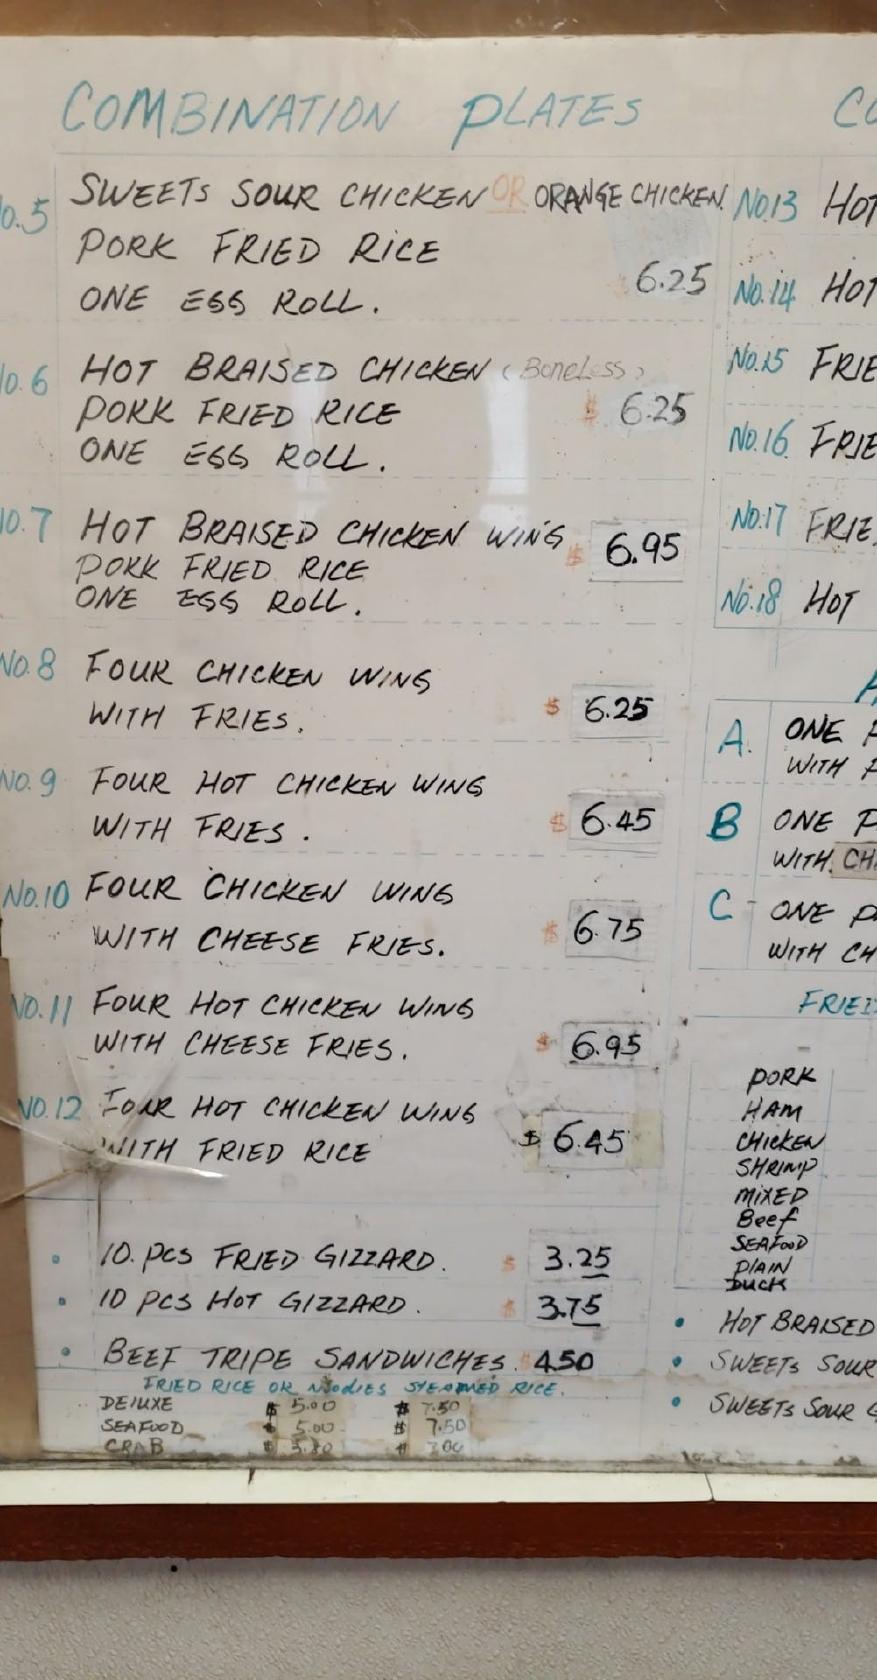 COMBINATION PLATES
No.5 SWEETS SOUR CHICKEN OR ORANGE CHICKEN.
PORK FRIED RICE
ONE EGG ROLL. 6.25
No.6 HOT BRAISED CHICKEN (Boneless)
PORK FRIED RICE $ 6.25
ONE EGG ROLL.
NO.7 HOT BRAISED CHICKEN WING $ 6.95
PORK FRIED RICE
ONE EGG ROLL.
NO.8 FOUR CHICKEN WING
WITH FRIES. $ 6.25
NO.9 FOUR HOT CHICKEN WING
WITH FRIES. $ 6.45
NO.10 FOUR CHICKEN WING
WITH CHEESE FRIES. $ 6.75
NO.11 FOUR HOT CHICKEN WING
WITH CHEESE FRIES. $ 6.95
NO.12 FOUR HOT CHICKEN WING
WITH FRIED RICE $ 6.45
• 10. PCS FRIED GIZZARD. $ 3.25
• 10 PCS HOT GIZZARD. $ 3.75
• BEEF TRIPE SANDWICHES. $ 4.50
FRIED RICE OR NOODLES STEAMED RICE.
DELUXE $ 5.00 $ 7.50
SEAFOOD $ 5.00 $ 7.50
CRAB
No.13 HOT
No.14 HOT
No.15 FRIE
No.16 FRIE
No.17 FRIE
No.18 HOT
A. ONE
WITH
B ONE P
WITH. CH
C - ONE P
WITH CH
FRIED
PORK
HAM
CHICKEN
SHRIMP
MIXED
Beef
SEAFOOD
PLAIN
DUCK
• HOT BRAISED
• SWEETS SOUR
• SWEETS SOUR